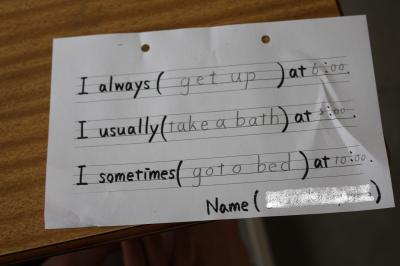 I always ( get up ) at 6:00.
I usually (take a bath) at :00.
I sometimes( go to bed ) at 10:00.
Name ( )